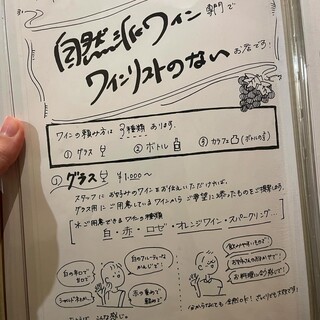 自然派ワイン専門で
ワインリストのないお店です!
ワインの頼み方は3種類あります。
① グラス ② ボトル ③ カラフェ(ボトルのみ)
① グラス ¥1,000〜
スタッフにお好みのワインをお伝えいただければ、
グラス用にご用意しているワインからご希望に添ったものをご提案します。
※ご用意できるワインの種類
白・赤・ロゼ・オレンジワイン・スパークリング…
白の辛口で
白のフルーティーな
かんじで!
赤の重めで
飲みやすいもので!
お料理に合う感じで!